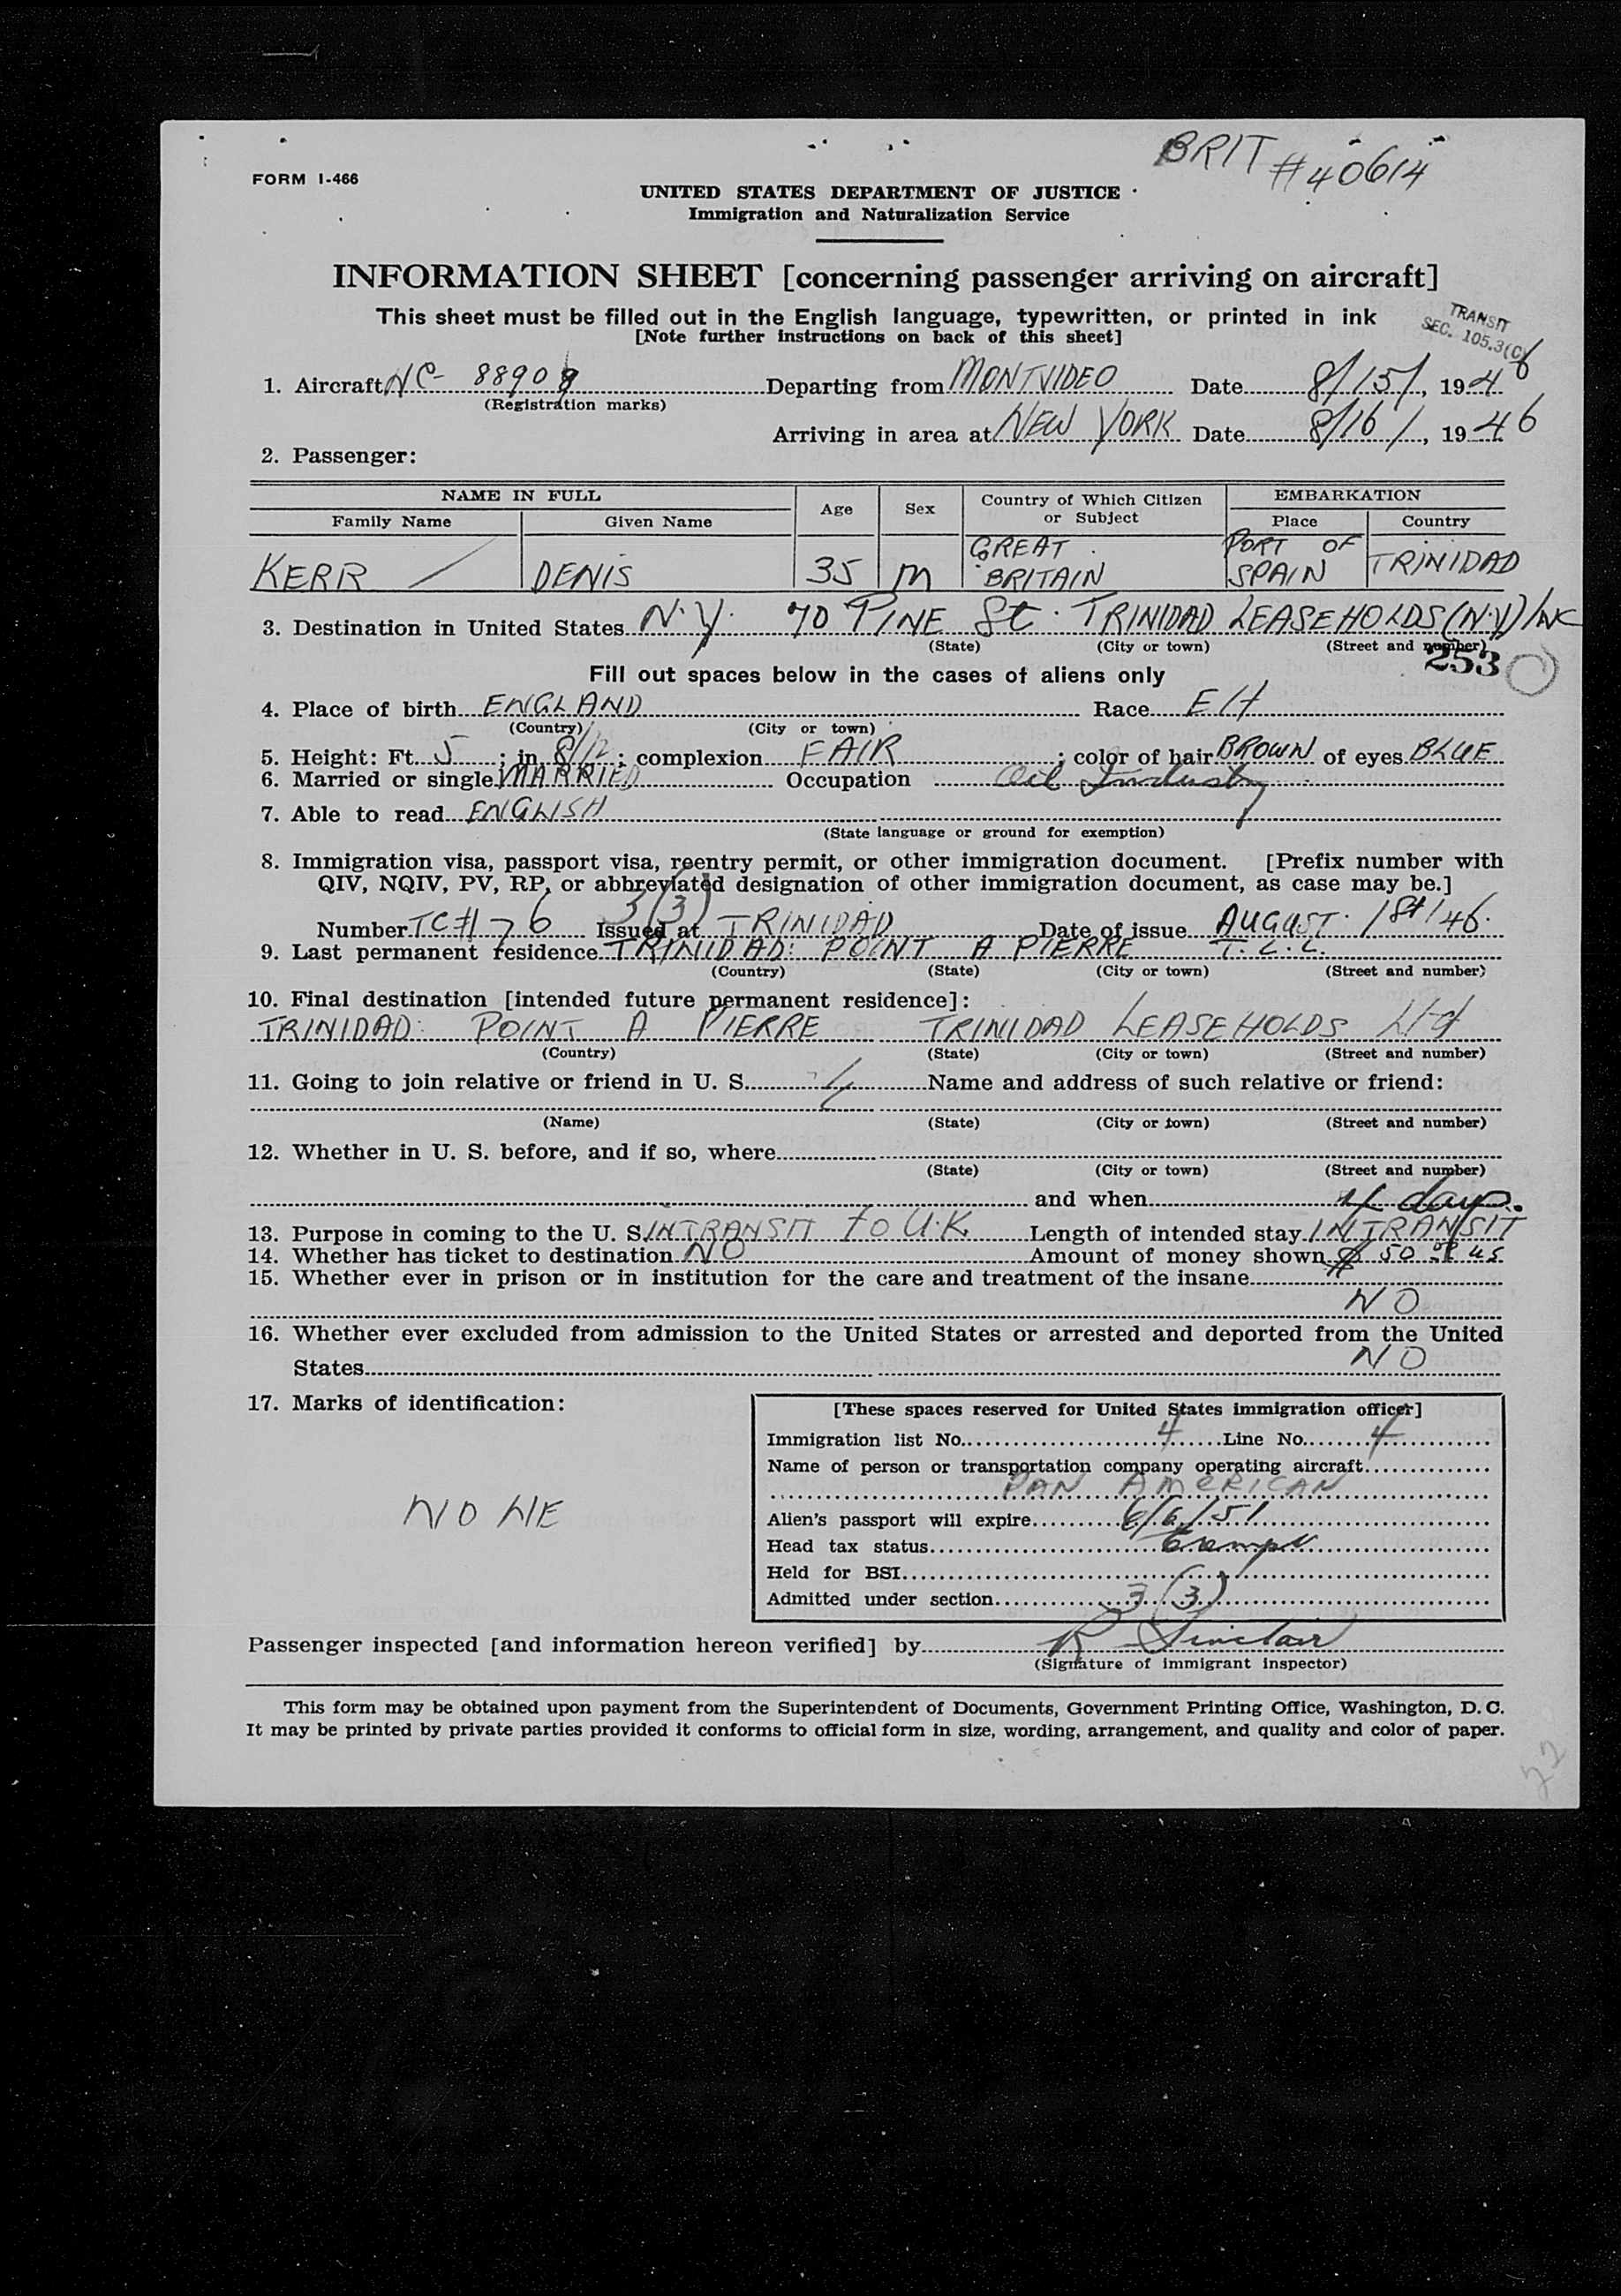 BRIT #40614
FORM I-466
UNITED STATES DEPARTMENT OF JUSTICE
Immigration and Naturalization Service
INFORMATION SHEET [concerning passenger arriving on aircraft]
This sheet must be filled out in the English language, typewritten, or printed in ink
[Note further instructions on back of this sheet]
TRANSIT
SEC. 105.3(C)
1. Aircraft NC- 88909 Departing from MONTVIDEO Date 8/15/, 1946
(Registration marks)
Arriving in area at NEW YORK Date 8/16/, 1946
2. Passenger:
NAME IN FULL Age Sex Country of Which Citizen or Subject EMBARKATION
Family Name Given Name Place Country
KERR DENIS 35 M GREAT BRITAIN PORT OF SPAIN TRINIDAD
3. Destination in United States N.Y. 70 PINE St. TRINIDAD LEASEHOLDS (N.Y) INC
(State) (City or town) (Street and number)
253
Fill out spaces below in the cases of aliens only
4. Place of birth ENGLAND Race
(Country) (City or town)
5. Height: Ft. 5; in 8/12; complexion FAIR; color of hair BROWN of eyes BLUE
6. Married or single MARRIED Occupation Oil Industry
7. Able to read ENGLISH
(State language or ground for exemption)
8. Immigration visa, passport visa, reentry permit, or other immigration document. [Prefix number with
QIV, NQIV, PV, RP, or abbreviated designation of other immigration document, as case may be.]
3(3)
Number TC#176 Issued at TRINIDAD Date of issue AUGUST. 1st/46.
9. Last permanent residence TRINIDAD: POINT A PIERRE T.L.L.
(Country) (State) (City or town) (Street and number)
10. Final destination [intended future permanent residence]:
TRINIDAD: POINT A PIERRE TRINIDAD LEASEHOLDS Ltd
(Country) (State) (City or town) (Street and number)
11. Going to join relative or friend in U. S. Name and address of such relative or friend:
(Name) (State) (City or town) (Street and number)
12. Whether in U. S. before, and if so, where
(State) (City or town) (Street and number)
and when
4 days.
13. Purpose in coming to the U. S. INTRANSIT to U.K Length of intended stay INTRANSIT
14. Whether has ticket to destination NO Amount of money shown $ 50 US
15. Whether ever in prison or in institution for the care and treatment of the insane
NO
16. Whether ever excluded from admission to the United States or arrested and deported from the United
States NO
17. Marks of identification:
NONE
[These spaces reserved for United States immigration officer]
Immigration list No. 4 Line No. 4
Name of person or transportation company operating aircraft
PAN AMERICAN
Alien's passport will expire 6/6/51
Head tax status Exempt
Held for BSI
Admitted under section 3(3)
Passenger inspected [and information hereon verified] by R Sinclair
(Signature of immigrant inspector)
This form may be obtained upon payment from the Superintendent of Documents, Government Printing Office, Washington, D. C.
It may be printed by private parties provided it conforms to official form in size, wording, arrangement, and quality and color of paper.
22